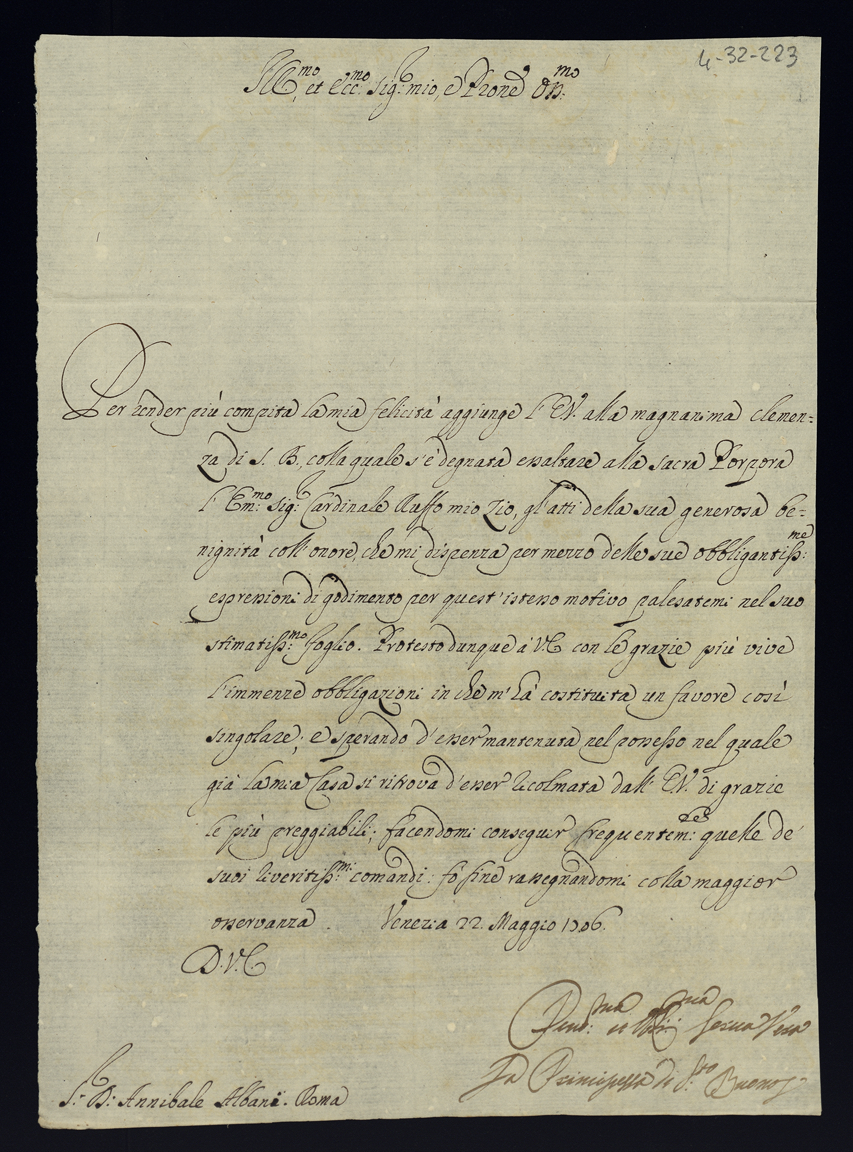 4-32-223
Ill.mo, et Ecc.mo Sig.r mio, e Prone Oss.mo
Per render più compita la mia felicità aggiunge l'E.V. alla magnanima Clemen=
za di S. B., colla quale s'è degnata essaltare alla Sacra Porpora
l'Em.mo Sig.r Cardinale Ruffo mio Zio, gl'atti della sua generosa be=
nignità coll'onore, che mi dispenza per mezzo delle sue obbligantiss.me
espressioni di godimento per quest'istesso motivo palesatemi nel suo
stimatiss.mo foglio. Protesto dunque à V.E. con le grazie più vive
l'immenze obbligazioni in che m'hà costituita un favore così
singolare; e sperando d'esser mantenuta nel possesso nel quale
già la mia Casa si ritrova d'esser ricolmata dall'E.V. di grazie
le più preggiabili; facendomi conseguir frequentem.te quelle de'
suoi riveritiss.mi comandi: fò fine rassegnandomi colla maggior
osservanza. Venezia 22. Maggio 1706.
D. V. E.
S.r D: Annibale Albani. Roma
Dev.ma et Obli.ma Serva Vera
La Principessa di S.to Buono